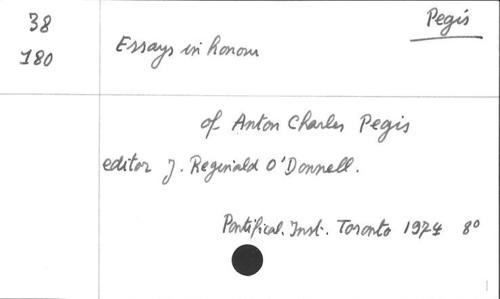 Pegis
38
180
Essays in honour
of Anton Charles Pegis
editor J. Reginald O'Donnell.
Pontifical. Inst. Toronto 1974 8°